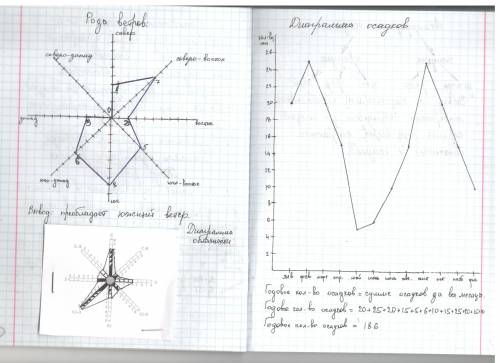 Роза ветров:
север
северо-запад
северо-восток
1
7
0
запад
3
2
восток
6
5
юго-запад
8
юго-восток
юг
Вывод: преобладает южный ветер.
Диаграмма
облачности
Диаграмма осадков
кол-во/
мм
28
26
24
22
20
18
16
14
12
10
8
6
4
2
янв фев мар апр май июн июл авг. сен окт ноя дек
Годовое кол-во осадков = сумме осадков за все месяцы.
Годовое кол-во осадков = 20+25+20+15+5+6+10+15+25+20+15+10
Годовое кол-во осадков = 186